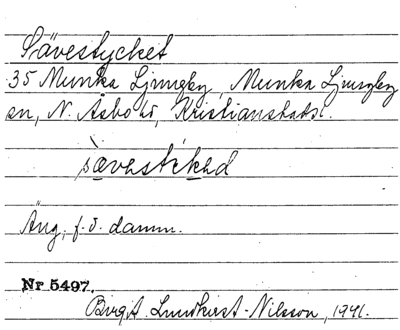 Sävestycket
35 Munka Ljungby, Munka Ljungby
sn, N. Åsbo hd, Kristianstads l.
sævestikəd
Äng, f. d. damm.
Nr 5497.
Birgit Lundkvist-Nilsson, 1941.